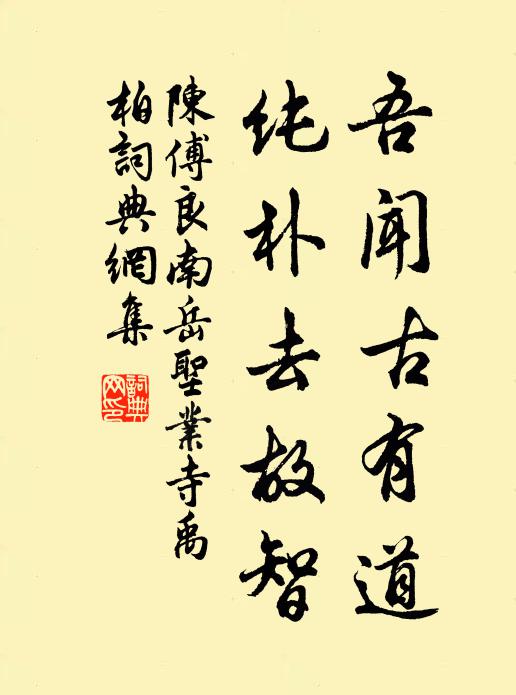 吾闻古有道
纯朴去故智
陳傅良南岳聖業寺禹
柏詞典網集
詞典网印